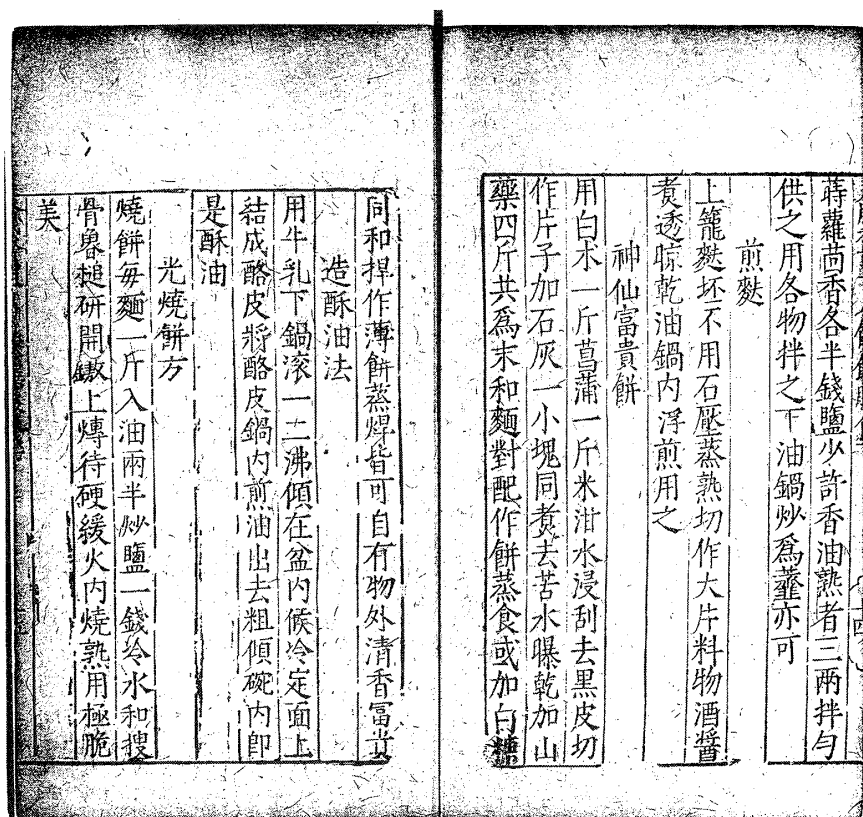 蒔蘿茴香各半錢鹽少許香油熟者三兩拌勻
供之用各物拌之下油鍋炒爲虀亦可
煎麩
上籠麩坯不用石壓蒸熟切作大片料物酒醬
煮透晾乾油鍋內浮煎用之
神仙富貴餅
用白朮一斤菖蒲一斤米泔水浸刮去黑皮切
作片子加石灰一小塊同煮去苦水曝乾加山
藥四斤共爲末和麵對配作餅蒸食或加白糖
同和捍作薄餅蒸焊皆可自有物外清香富貴
造酥油法
用牛乳下鍋滾一二沸傾在盆內候冷定面上
結成酪皮將酪皮鍋內煎油出去粗傾碗內卽
是酥油
光燒餅方
燒餅每麵一斤入油兩半炒鹽一錢冷水和搜
骨魯槌研開鏊上煿待硬緩火內燒熟用極脆
美